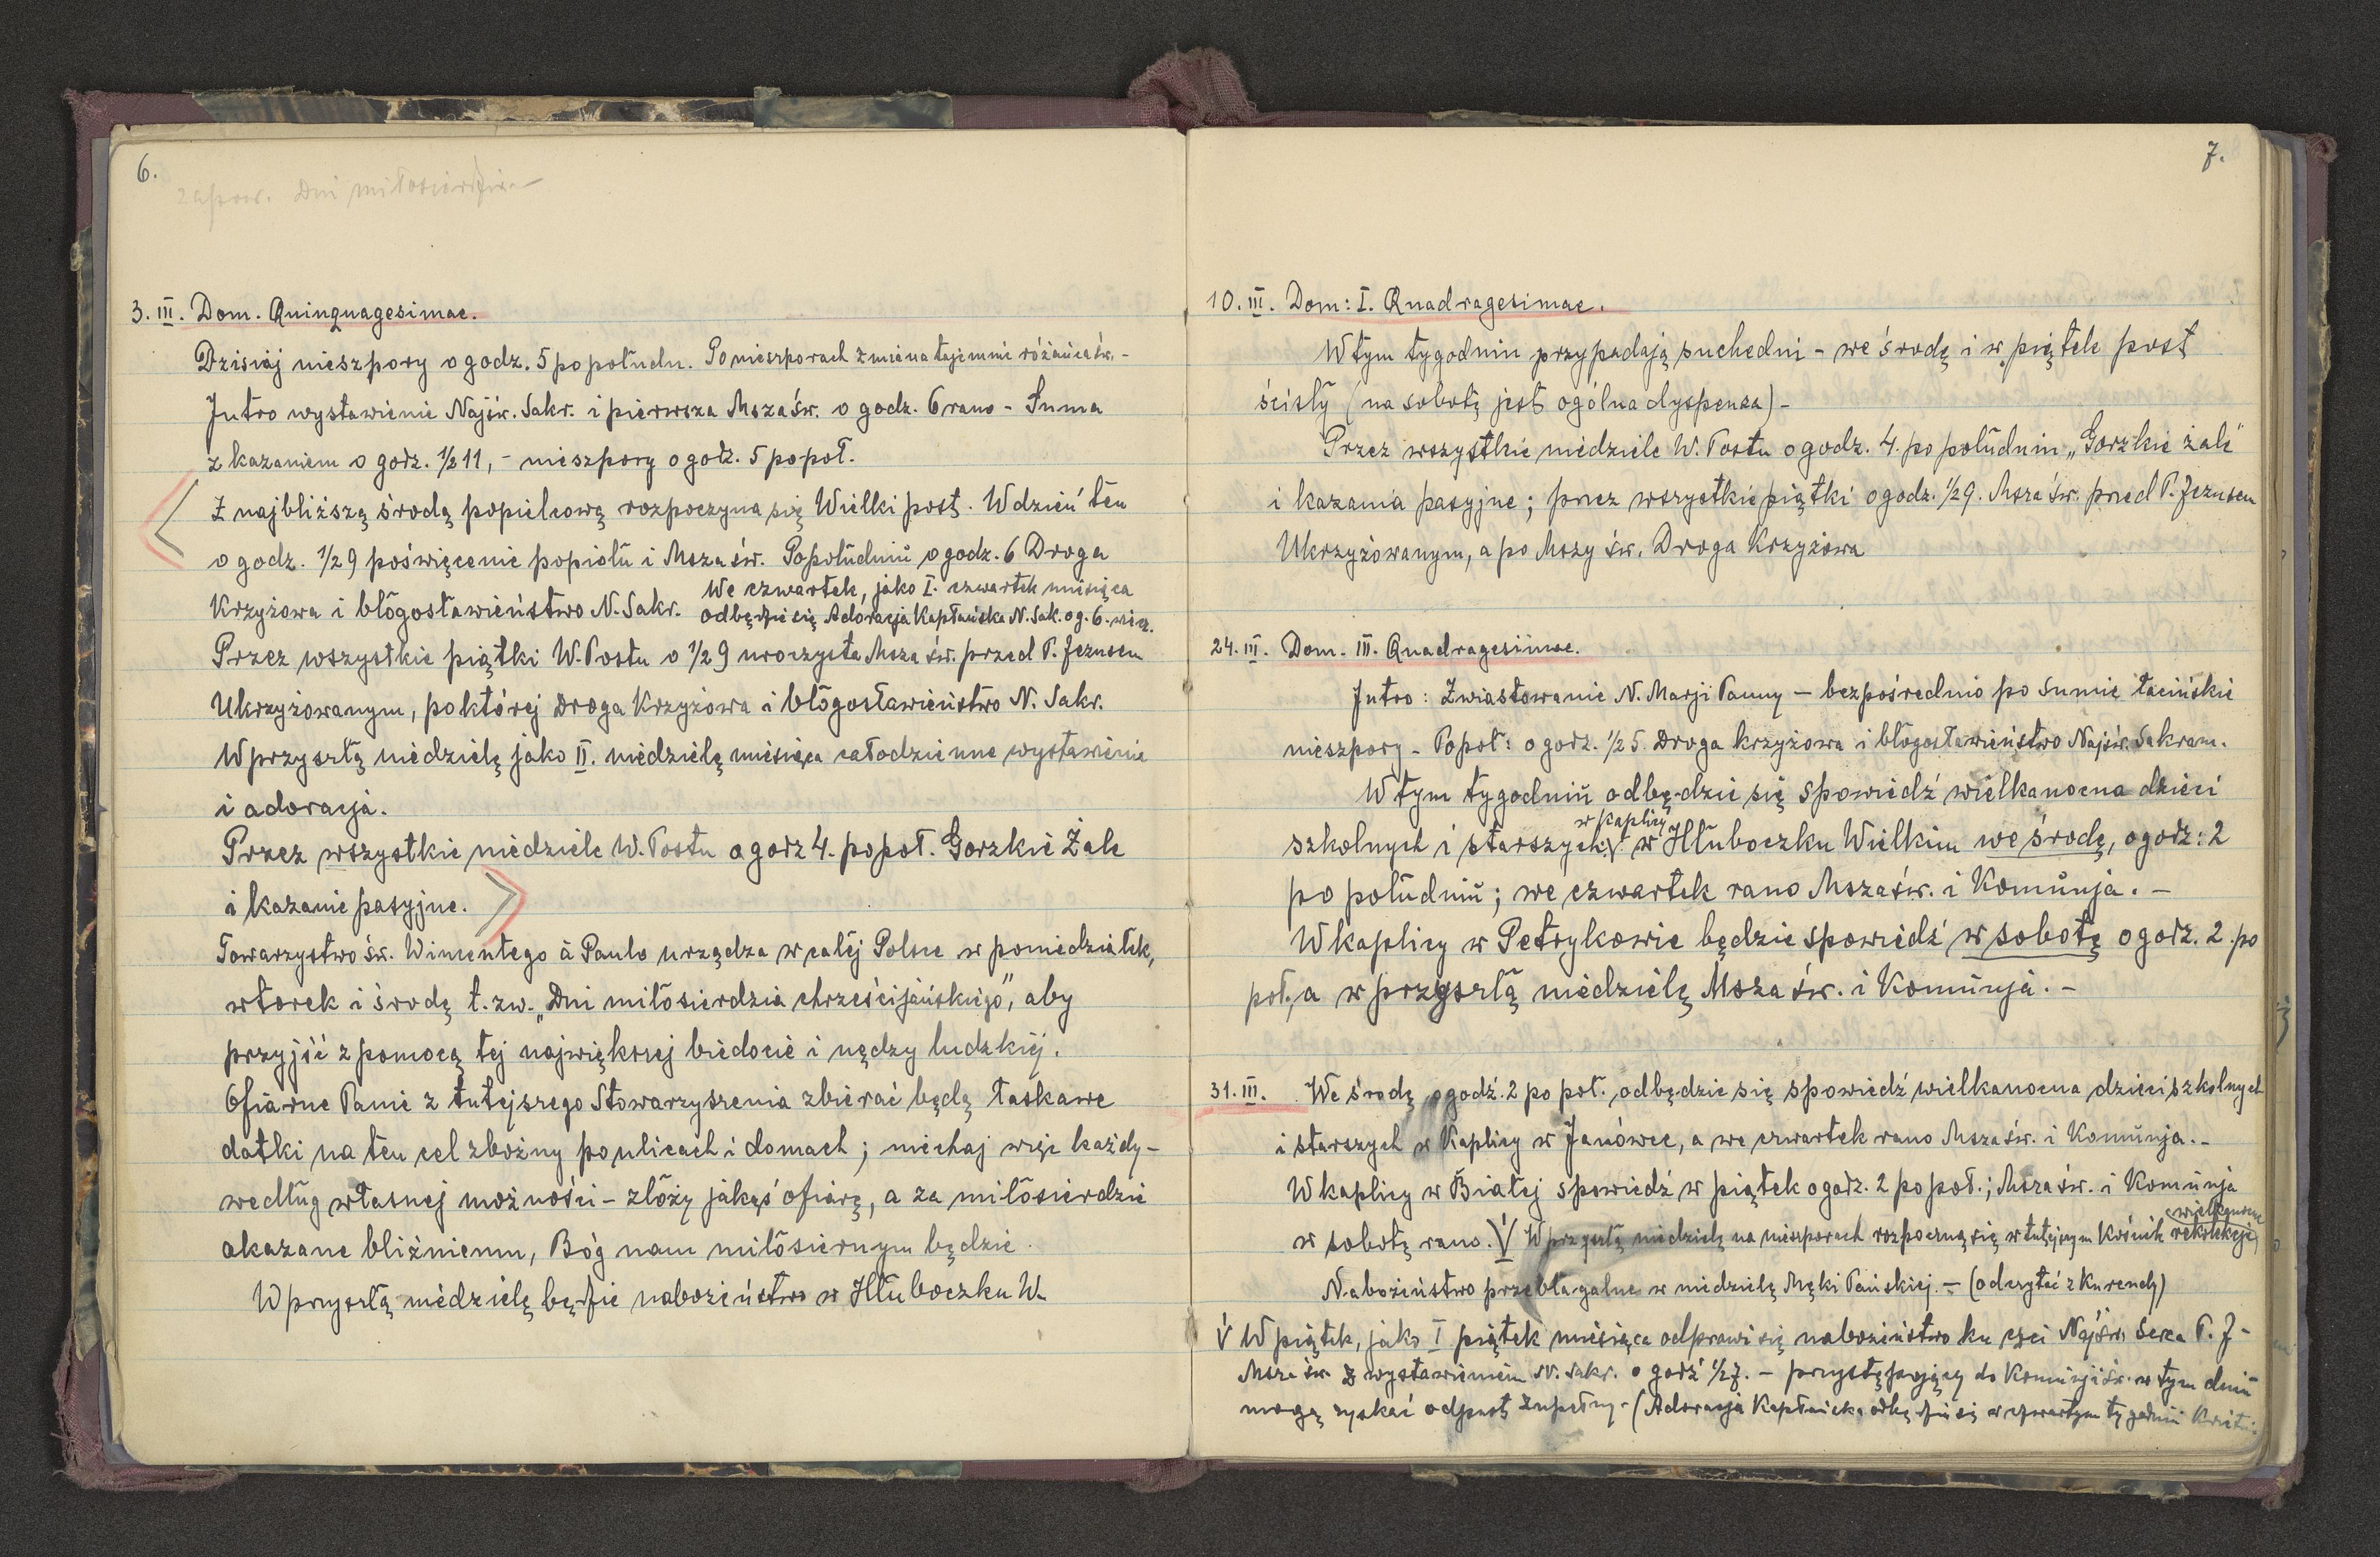 6.
zapow. Dni miłosierdzia
3. III. Dom. Quinquagesimae.
Dzisiaj nieszpory o godz. 5 po połudn. Po nieszporach zmiana tajemnic różańca św. -
Jutro wystawienie Najśw. Sakr. i pierwsza Msza św. o godz. 6 rano - Suma
z kazaniem o godz. 1/2 11, - nieszpory o godz. 5 popoł.
Z najbliższą środą popielcową rozpoczyna się Wielki post. W dzień ten
o godz. 1/2 9 poświęcenie popiołu i Msza św. Popołudniu o godz. 6 Droga
Krzyżowa i błogosławieństwo N. Sakr. We czwartek, jako I. czwartek miesiąca
odbędzie się Adoracja Kapłańska N. Sak. o g. 6. wiecz.
Przez wszystkie piątki W. Postu o 1/2 9 uroczysta Msza św. przed P. Jezusem
Ukrzyżowanym, po której Droga Krzyżowa i błogosławieństwo N. Sakr.
W przyszłą niedzielę jako II. niedzielę miesiąca całodzienne wystawienie
i adoracja.
Przez wszystkie niedziele W. Postu o godz 4. popoł. Gorzkie Żale
i kazanie pasyjne.
Towarzystwo św. Wincentego à Paulo urządza w całej Polsce w poniedziałek,
wtorek i środę t. zw. „Dni miłosierdzia chrześcijańskiego", aby
przyjść z pomocą tej największej biedocie i nędzy ludzkiej.
Ofiarne Panie z tutejszego Stowarzyszenia zbierać będą łaskawe
datki na ten cel zbożny po ulicach i domach; niechaj więc każdy -
według własnej możności - złoży jakąś ofiarę, a za miłosierdzie
okazane bliźniemu, Bóg nam miłosiernym będzie.
W przyszłą niedzielę będzie nabożeństwo w Hłuboczku W.
7.
10. III. Dom: I. Quadragesimae.
W tym tygodniu przypadają suchedni - we środę i w piątek post
ścisły (na sobotę jest ogólna dyspensa) -
Przez wszystkie niedziele W. Postu o godz. 4. po południu „Gorzkie żale"
i kazania pasyjne; przez wszystkie piątki o godz. 1/2 9. Msza św. przed P. Jezusem
Ukrzyżowanym, a po Mszy św. Droga Krzyżowa
24. III. Dom. III. Quadragesimae.
Jutro: Zwiastowanie N. Marji Panny - bezpośrednio po sumie łacińskie
nieszpory - Popoł: o godz. 1/2 5. Droga krzyżowa i błogosławieństwo Najśw. Sakram.
W tym tygodniu odbędzie się spowiedź wielkanocna dzieci
w kaplicy
szkolnych i starszych w Hłuboczku Wielkim we środę, o godz: 2
po południu; we czwartek rano Msza św. i Komunja. -
W kaplicy w Petrykowie będzie spowiedź w sobotę o godz. 2. po
poł, a w przyszłą niedzielę Msza św. i Komunja. -
31. III. We środę o godź. 2 po poł. odbędzie się spowiedź wielkanocna dzieci szkolnych
i starszych w Kaplicy w Janówce, a we czwartek rano Msza św. i Komunja. -
W kaplicy w Białej spowiedź w piątek o godz. 2 po poł.; Msza św. i Komunja
wielkopostne
w sobotę rano. V W przyszłą niedzielę na nieszporach rozpoczną się w tutejszym Kościele rekolekcje
Nabożeństwo przebłagalne w niedzielę Męki Pańskiej. - (odczytać z Kurendy)
V W piątek, jako I piątek miesiąca odprawi się nabożeństwo ku czci Najśw. Serca P. J. -
Msza św. z wystawieniem N. Sakr. o godź 1/2 7. - przystępujący do Komunji św. w tym dniu
mogą zyskać odpust zupełny - (Adoracja Kapłańska odbędzie się w czwartym tygodniu Kwietn.